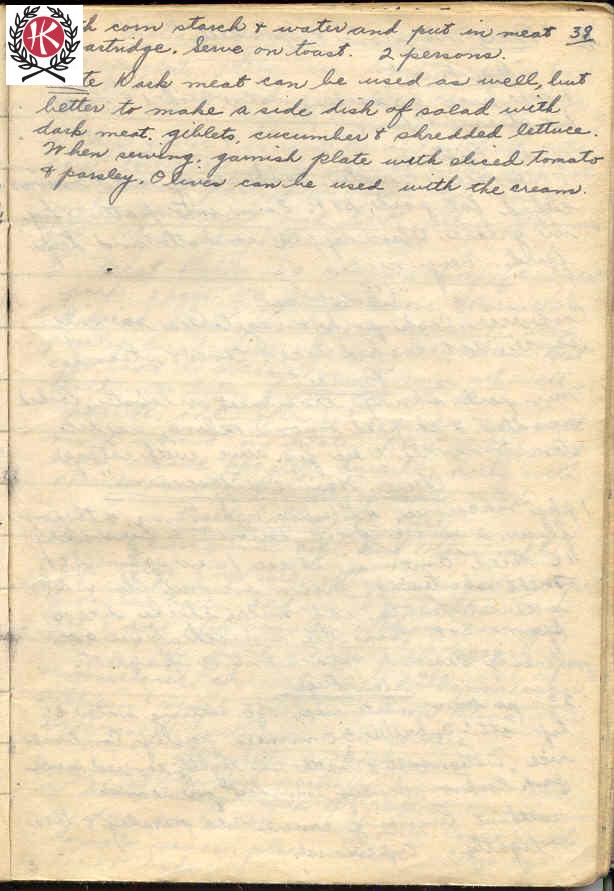 HK
corn starch & water and put in meat 39
artridge. Serve on toast. 2 persons.
Dark meat can be used as well, but
better to make a side dish of salad with
dark meat, giblets, cucumber & shredded lettuce.
When serving, garnish plate with sliced tomato
& parsley. Olives can be used with the cream.